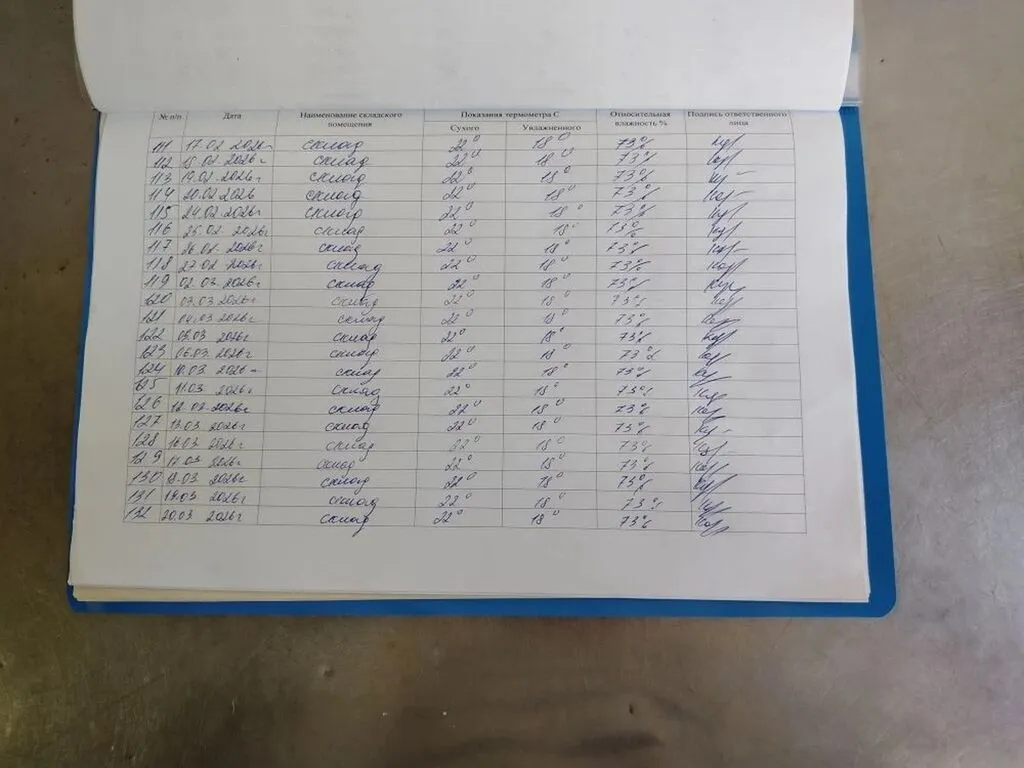 № п/п Дата Наименование складского помещения Показания термометра С Относительная влажность % Подпись ответственного лица
Сухого Увлажненного
111 17.02 2026г склад 22° 18° 73%
112 18.02 2026г склад 22° 18° 73%
113 19.02. 2026г склад 22° 18° 73%
114 20.02 2026 склад 22° 18° 73%
115 24.02.2026г склад 22° 18° 73%
116 25.02. 2026г склад 22° 18° 73%
117 26.02. 2026г склад 22° 18° 73%
118 27.02 2026г склад 22° 18° 73%
119 02.03. 2026г склад 22° 18° 73%
120 03.03 2026г склад 22° 18° 73%
121 04.03 2026г склад 22° 18° 73%
122 05.03 2026г склад 22° 18° 73%
123 06.03. 2026г склад 22° 18° 73%
124 10.03. 2026г склад 22° 18° 73%
125 11.03. 2026г склад 22° 18° 73%
126 12.03 2026г склад 22° 18° 73%
127 13.03 2026г склад 22° 18° 73%
128 16.03 2026г склад 22° 18° 73%
129 17.03 2026г склад 22° 18° 73%
130 18.03 2026г склад 22° 18° 73%
131 19.03 2026г склад 22° 18° 73%
132 20.03 2026г склад 22° 18° 73%